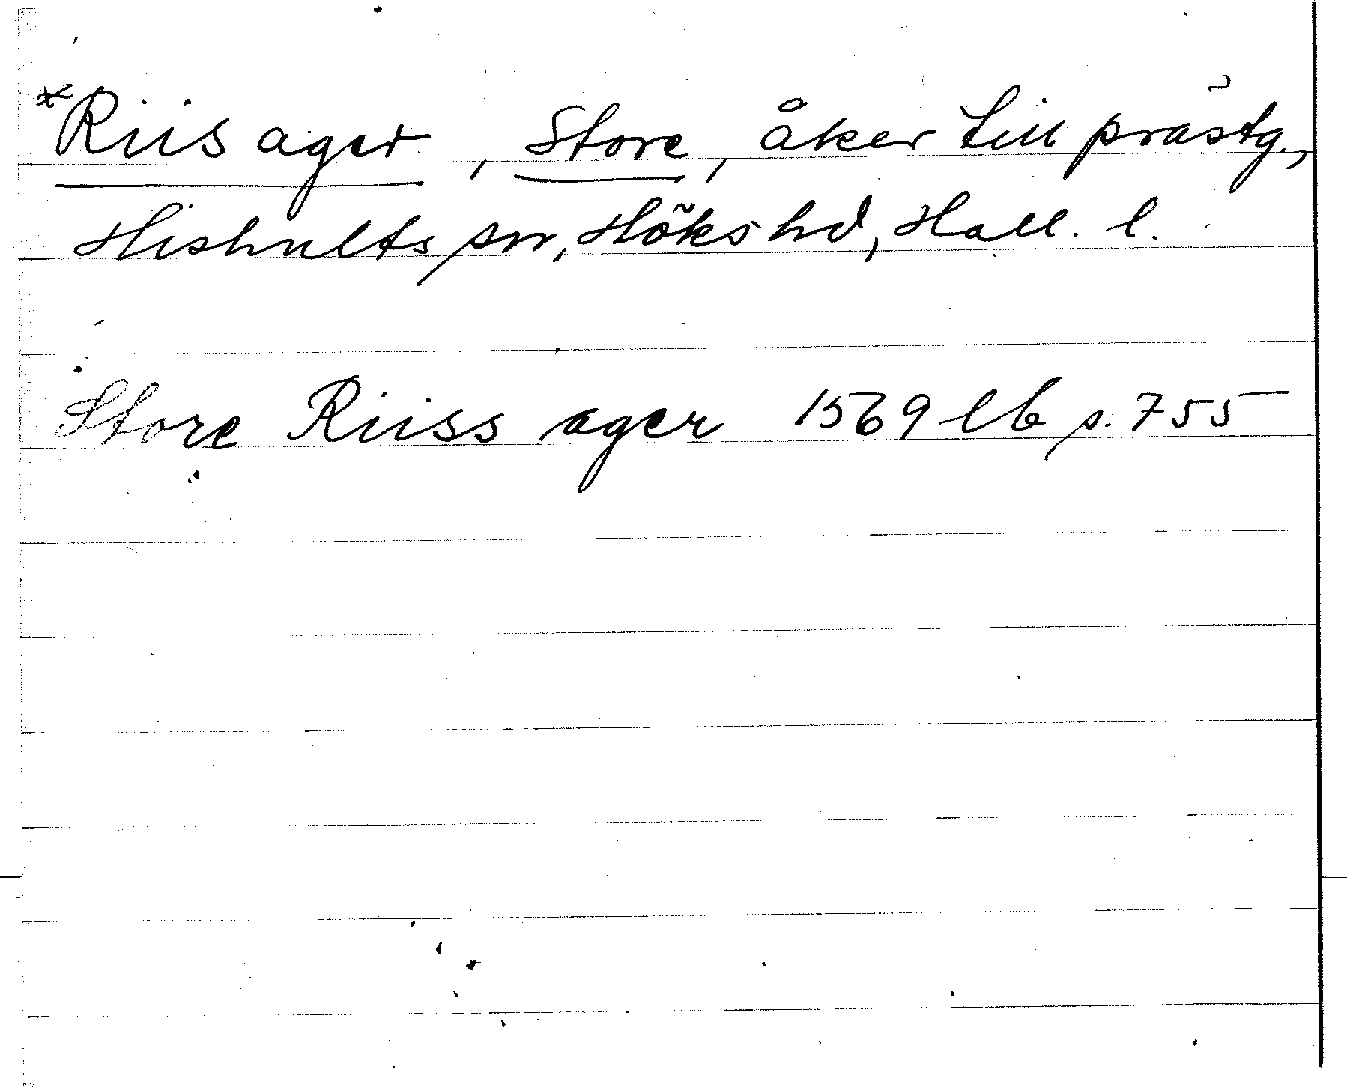 *Riis ager, Store, åker till prästg.,
Hishults sn, Höks hd, Hall. l.
Store Riiss ager 1569 lb s. 755